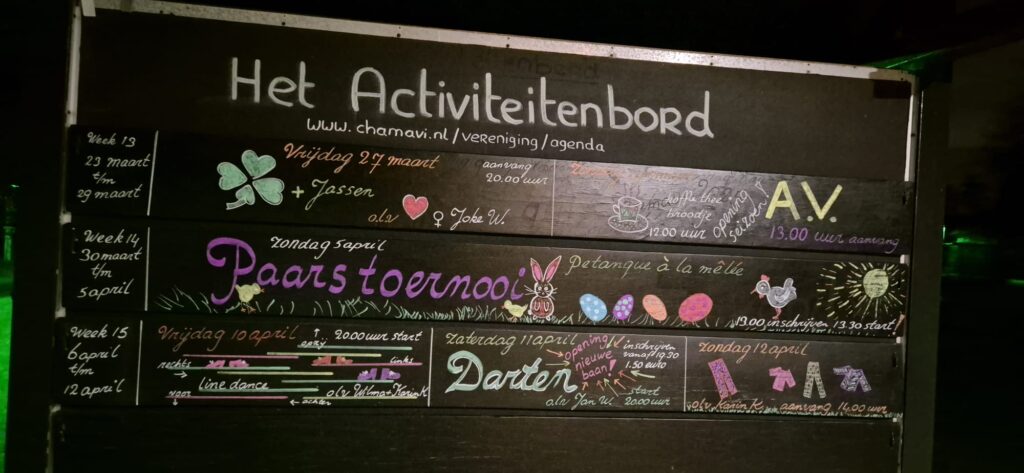 Het Activiteitenbord
www.chamavi.nl/vereniging/agenda
Week 13
23 maart
t/m
29 maart
Vrijdag 27 maart
aanvang
20.00 uur
+ Jassen
o.l.v
Joke W.
koffie thee
broodje
12.00 uur
opening
seizoen
A.V.
13.00 uur aanvang
Week 14
30 maart
t/m
5 april
Zondag 5 april
Paarstoernooi
Petanque à la mêlée
13.00 inschrijven 13.30 start
Week 15
6 april
t/m
12 april
Vrijdag 10 april
2000 uur start
opzij
rechts
links
Line dance
o.l.v Wilma + Karin K
voor
achter
Zaterdag 11 april
Darten
opening
nieuwe
baan!
inschrijven
vanaf 19.30
1.50 euro
start
20.00 uur
o.l.v Jan W.
Zondag 12 april
o.l.v Karin K.
aanvang 14.00 uur